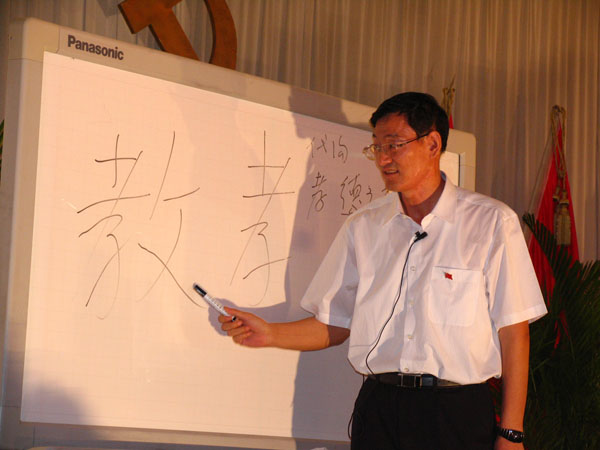 Panasonic
教 孝
代沟
孝 德